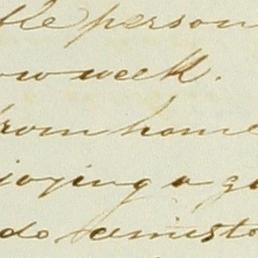 tle person
ow week.
from home
joying a g
do amisto